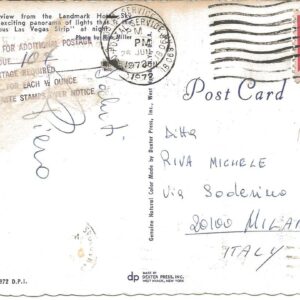 view from the Landmark Hotel
exciting panorama of lights that
ous Las Vegas Strip" at night.
Photo by Miller
FOR ADDITIONAL POSTAGE
DUE 10¢
POSTAGE REQUIRED
FOR EACH ½ OUNCE
STAMPS OVER NOTICE
PM
1972
Saluti
Piero
Post Card
Ditta
RIVA MICHELE
Via Soderino
20100 MILAN
ITALY
Genuine Natural Color Made by Dexter Press, Inc.
West Nyack, New York
dp
MADE BY
DEXTER PRESS, INC.
WEST NYACK, NEW YORK
972 D.P.I.